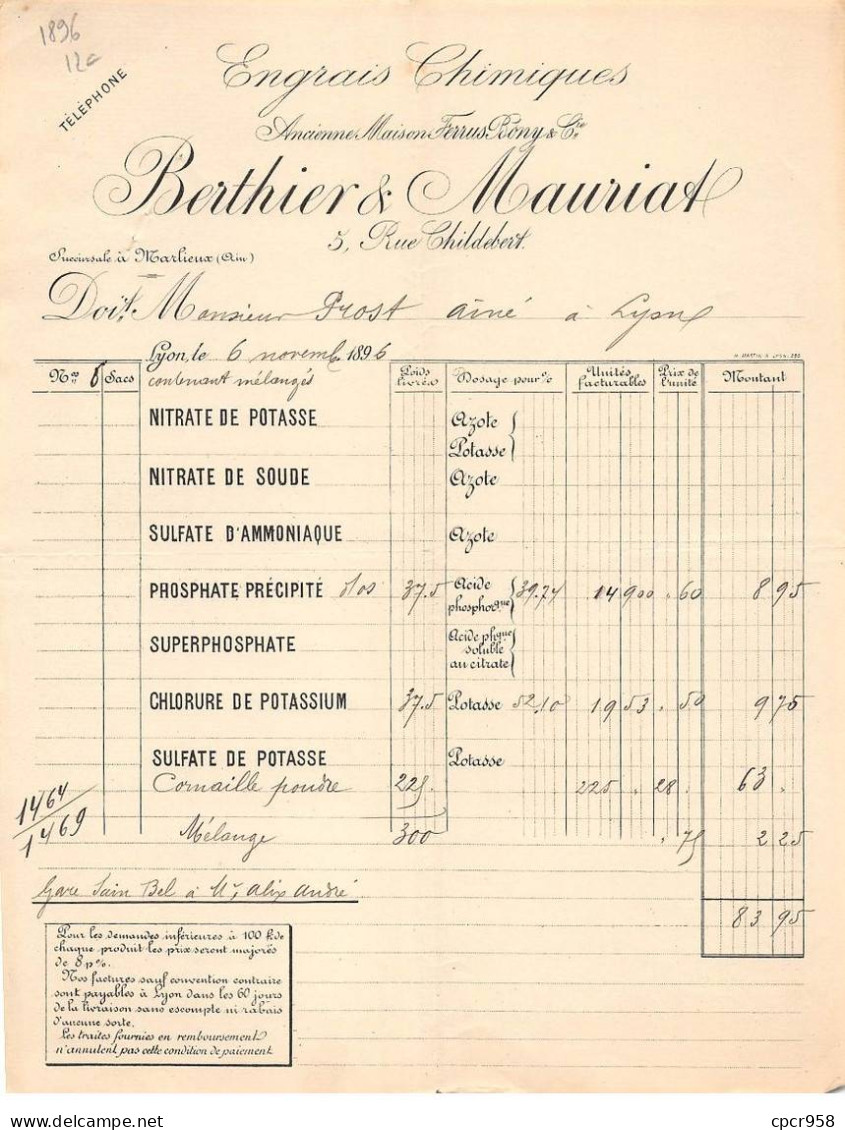 1896
12c
TÉLÉPHONE
Engrais Chimiques
Ancienne Maison Ferrus, Bony & Cie
Berthier & Mauriat
5, Rue Childebert.
Succursale à Marlieux (Ain)
Doit, Monsieur Prost ainé à Lyon
Lyon, le 6 novemb 1896
Nos 6 Sacs contenant mélangés Poids livrés Dosage pour % Unités facturables Prix de l'unité Montant
NITRATE DE POTASSE Azote
Potasse
NITRATE DE SOUDE Azote
SULFATE D'AMMONIAQUE Azote
PHOSPHATE PRÉCIPITÉ d'os 37.5 Acide phosphorique 39.74 14 900 . 60 8 95
SUPERPHOSPHATE Acide phque soluble au citrate
CHLORURE DE POTASSIUM 37.5 Potasse 52.10 19 53 . 50 9 75
SULFATE DE POTASSE Potasse
Cornaille poudre 225. 225 . 28 . 63 .
1464
1469
Mélange 300 . 75 2 25
Gare Sain Bel à Mr, Alix André
83 95
Pour les demandes inférieures à 100 k de
chaque produit les prix seront majorés
de 8 p%.
Nos factures sauf convention contraire
sont payables à Lyon dans les 60 jours
de la livraison sans escompte ni rabais
d'aucune sorte.
Les traites fournies en remboursement
n'annulent pas cette condition de paiement
www.delcampe.net
cpcr958